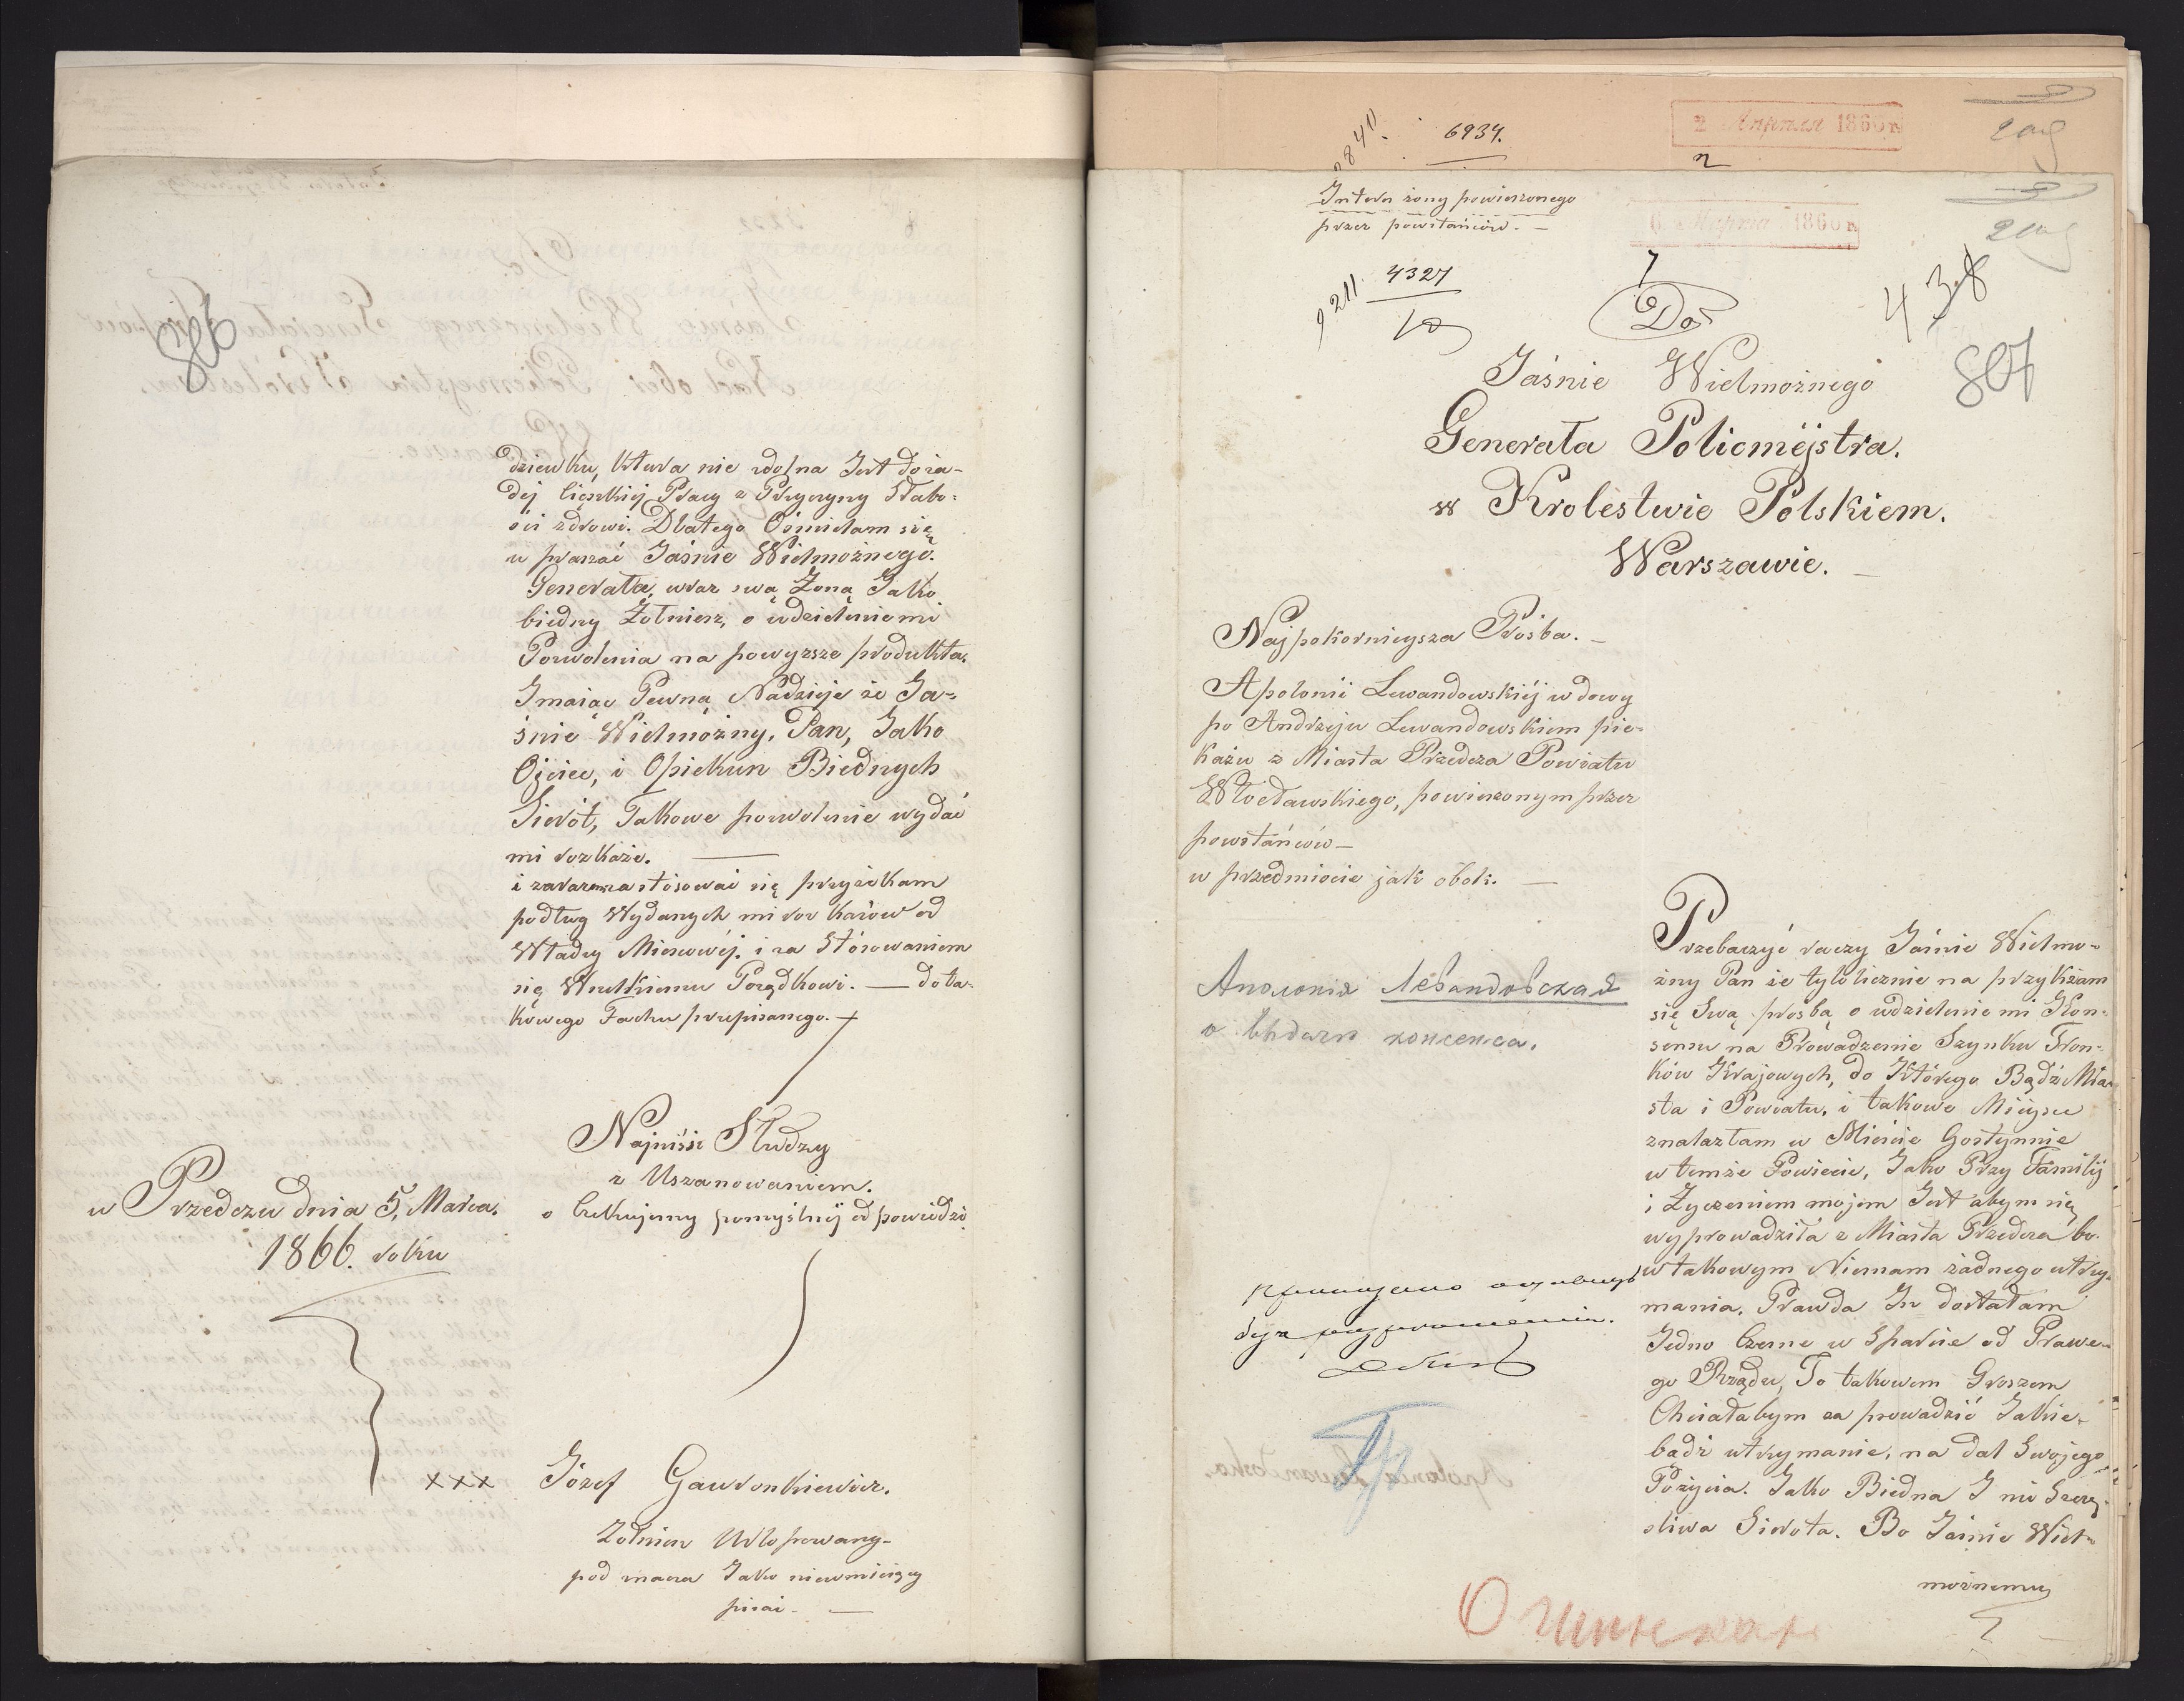 806
dziewku, ktura nie zdolna Jest do ża-
dej Cięszkiej Pracy z Przyczyny Słabo-
ści zdrowi. Dlatego Ośmielam się
u praszać Jaśnie Wielmożnego.
Generała, wraz swą Żoną Jako
biedny Żołnierz, o udzielenie mi
Pozwolenia na powyzsze produkta.
Imaiąc Pewną Nadzieje że Ja-
śnie Wielmożny, Pan, Jako
Ojciec, i Opiekun Biednych
Sierót, Takowe pozwolenie wydać
mi rozkaże. —
i zarazem zastósować się przyżekam
podług Wydanych mi roz kazów od
Władzy Miescowéj. i za Stósowaniem
się Wszelkiemu Porządkowi. — do ta-
kowego Fachu przepisanego. —
Najniśsi Słudzy
z Uszanowaniem.
o Czekujemy pomyślnéj od powiedzi
w Przedczu dnia 5, Marca.
1866. roku
xxx Józef Gawronkiewicz.
Żołnierz Urlopowany-
pod znacza Jako nieumieiący
pisać. —
6934.
2 Апреля 1866 г.
2
Intern żony powieszonego
przez powstańców. —
6 Марта 1866 г.
9211 4327
10
7
438
807
Do
Jáśnie Wielmożnego
Generała Policméjstra.
w Krolestwie Polskiem.
Warszawie. —
Najpokornieysza Prośba. —
Apolonii Lewandowskiéj wdowy
po Andrzeju Lewandowskiem pie-
każu z Miasta Przedcza Powiatu
Włocławskiego, powieszonym przez
powstáńców —
w przedmiocie jak óbok. —
Аполонія Левандовская
о выдачи консенса.
Przebaczyć raczy Jaśnie Wielmo-
żny Pan że tylolicznie na przykżam
się Swą prośbą o udzielenie mi Kon-
sensu na Prowadzenie Szynku Tron-
ków Krajowych, do Którego Bądź Mia-
sta i Powiatu, i takowe Mieysce
znalazłam w Mieście Gostynnie
w temże Powiecie, Jako Przy Familij
i Życzeniem mojem Jest abym się
wyprowadziła z Miasta Przedcza bo
w takowym Niemam żadnego utrzy-
mania. Prawda Iż dostałam
Jedno Czesne w Sparcie od Prawe-
go Rządu, To takowem Groszem
Chciałabym za prowadzić Jakie-
bądź utrzymanie, na dal Swojego
Pożycia. Jako Biedna I nie Szczę-
śliwa Sierota. Bo Jaśnie Wiel-
możnemu